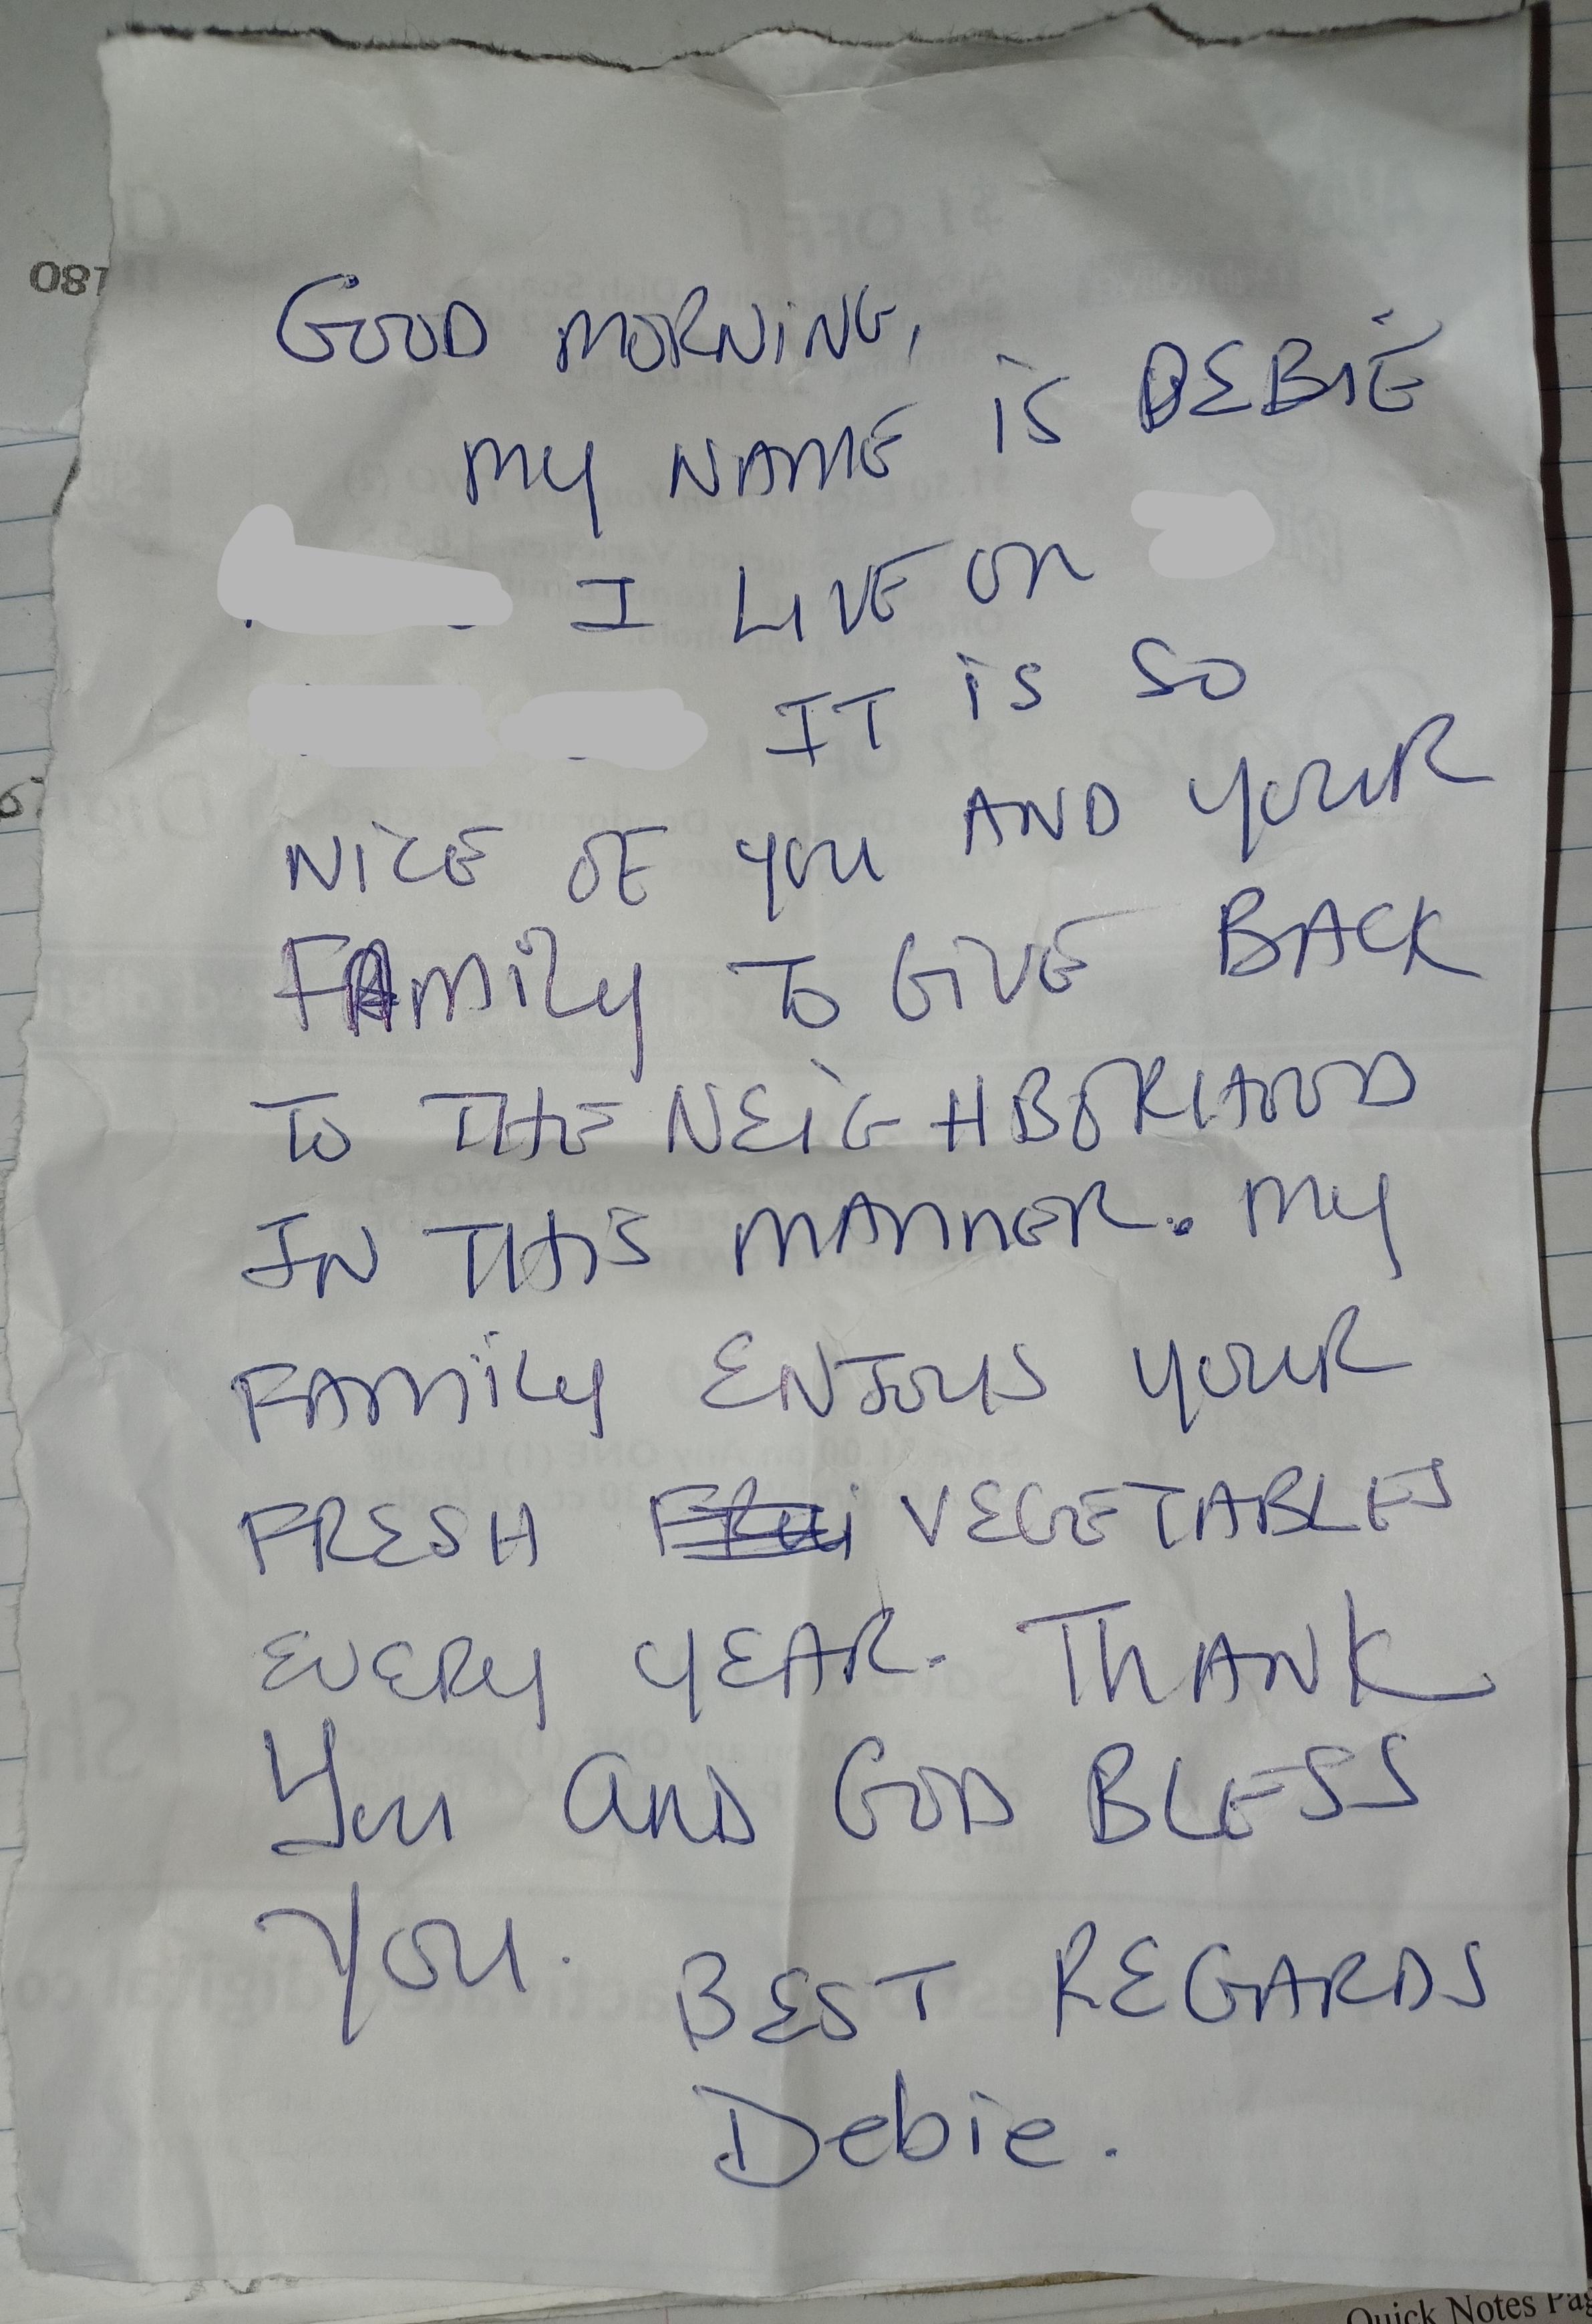 GOOD MORNING,
MY NAME IS DEBIE
I LIVE ON
IT IS SO
NICE OF YOU AND YOUR
FAMILY TO GIVE BACK
TO THE NEIGHBORHOOD
IN THIS MANNER. MY
FAMILY ENJOYS YOUR
FRESH VEGETABLES
EVERY YEAR. THANK
YOU AND GOD BLESS
YOU.
BEST REGARDS
Debie.
Quick Notes